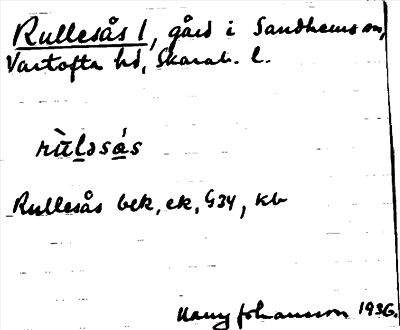 Rullesås 1, gård i Sandhems sn,
Vartofta hd, Skarab. l.
rùləsá̱s
Rullesås bek, ek, G34, kb
Harry Johansson 1936.